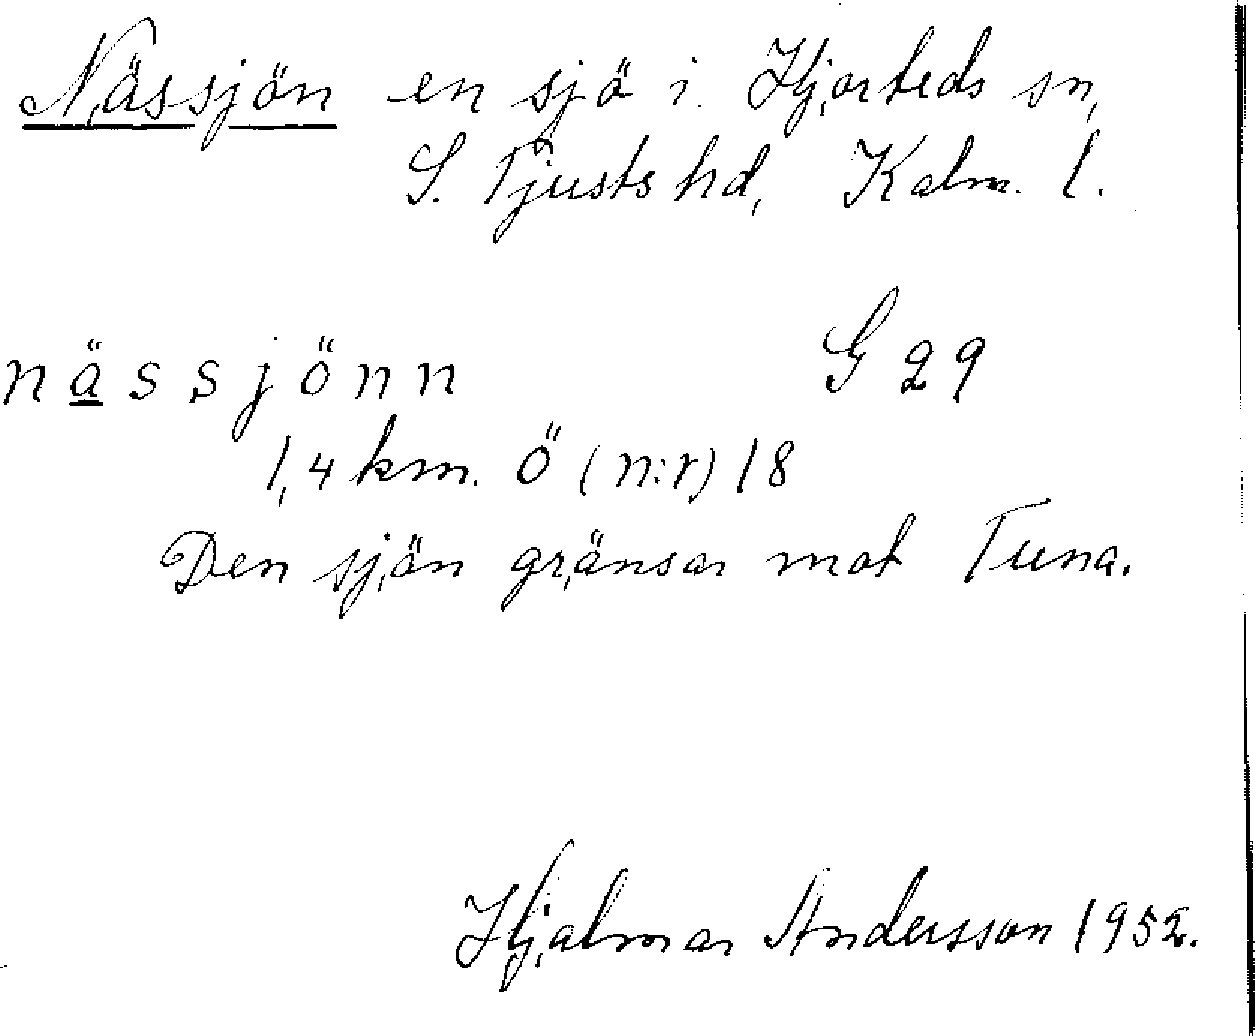 Nässjön en sjö i Hjorteds sn,
S. Tjusts hd, Kalm. l.
nässjönn G 29
1,4 km. Ö (n:r) 18
Den sjön gränsar mot Tuna.
Hjalmar Andersson 1952.